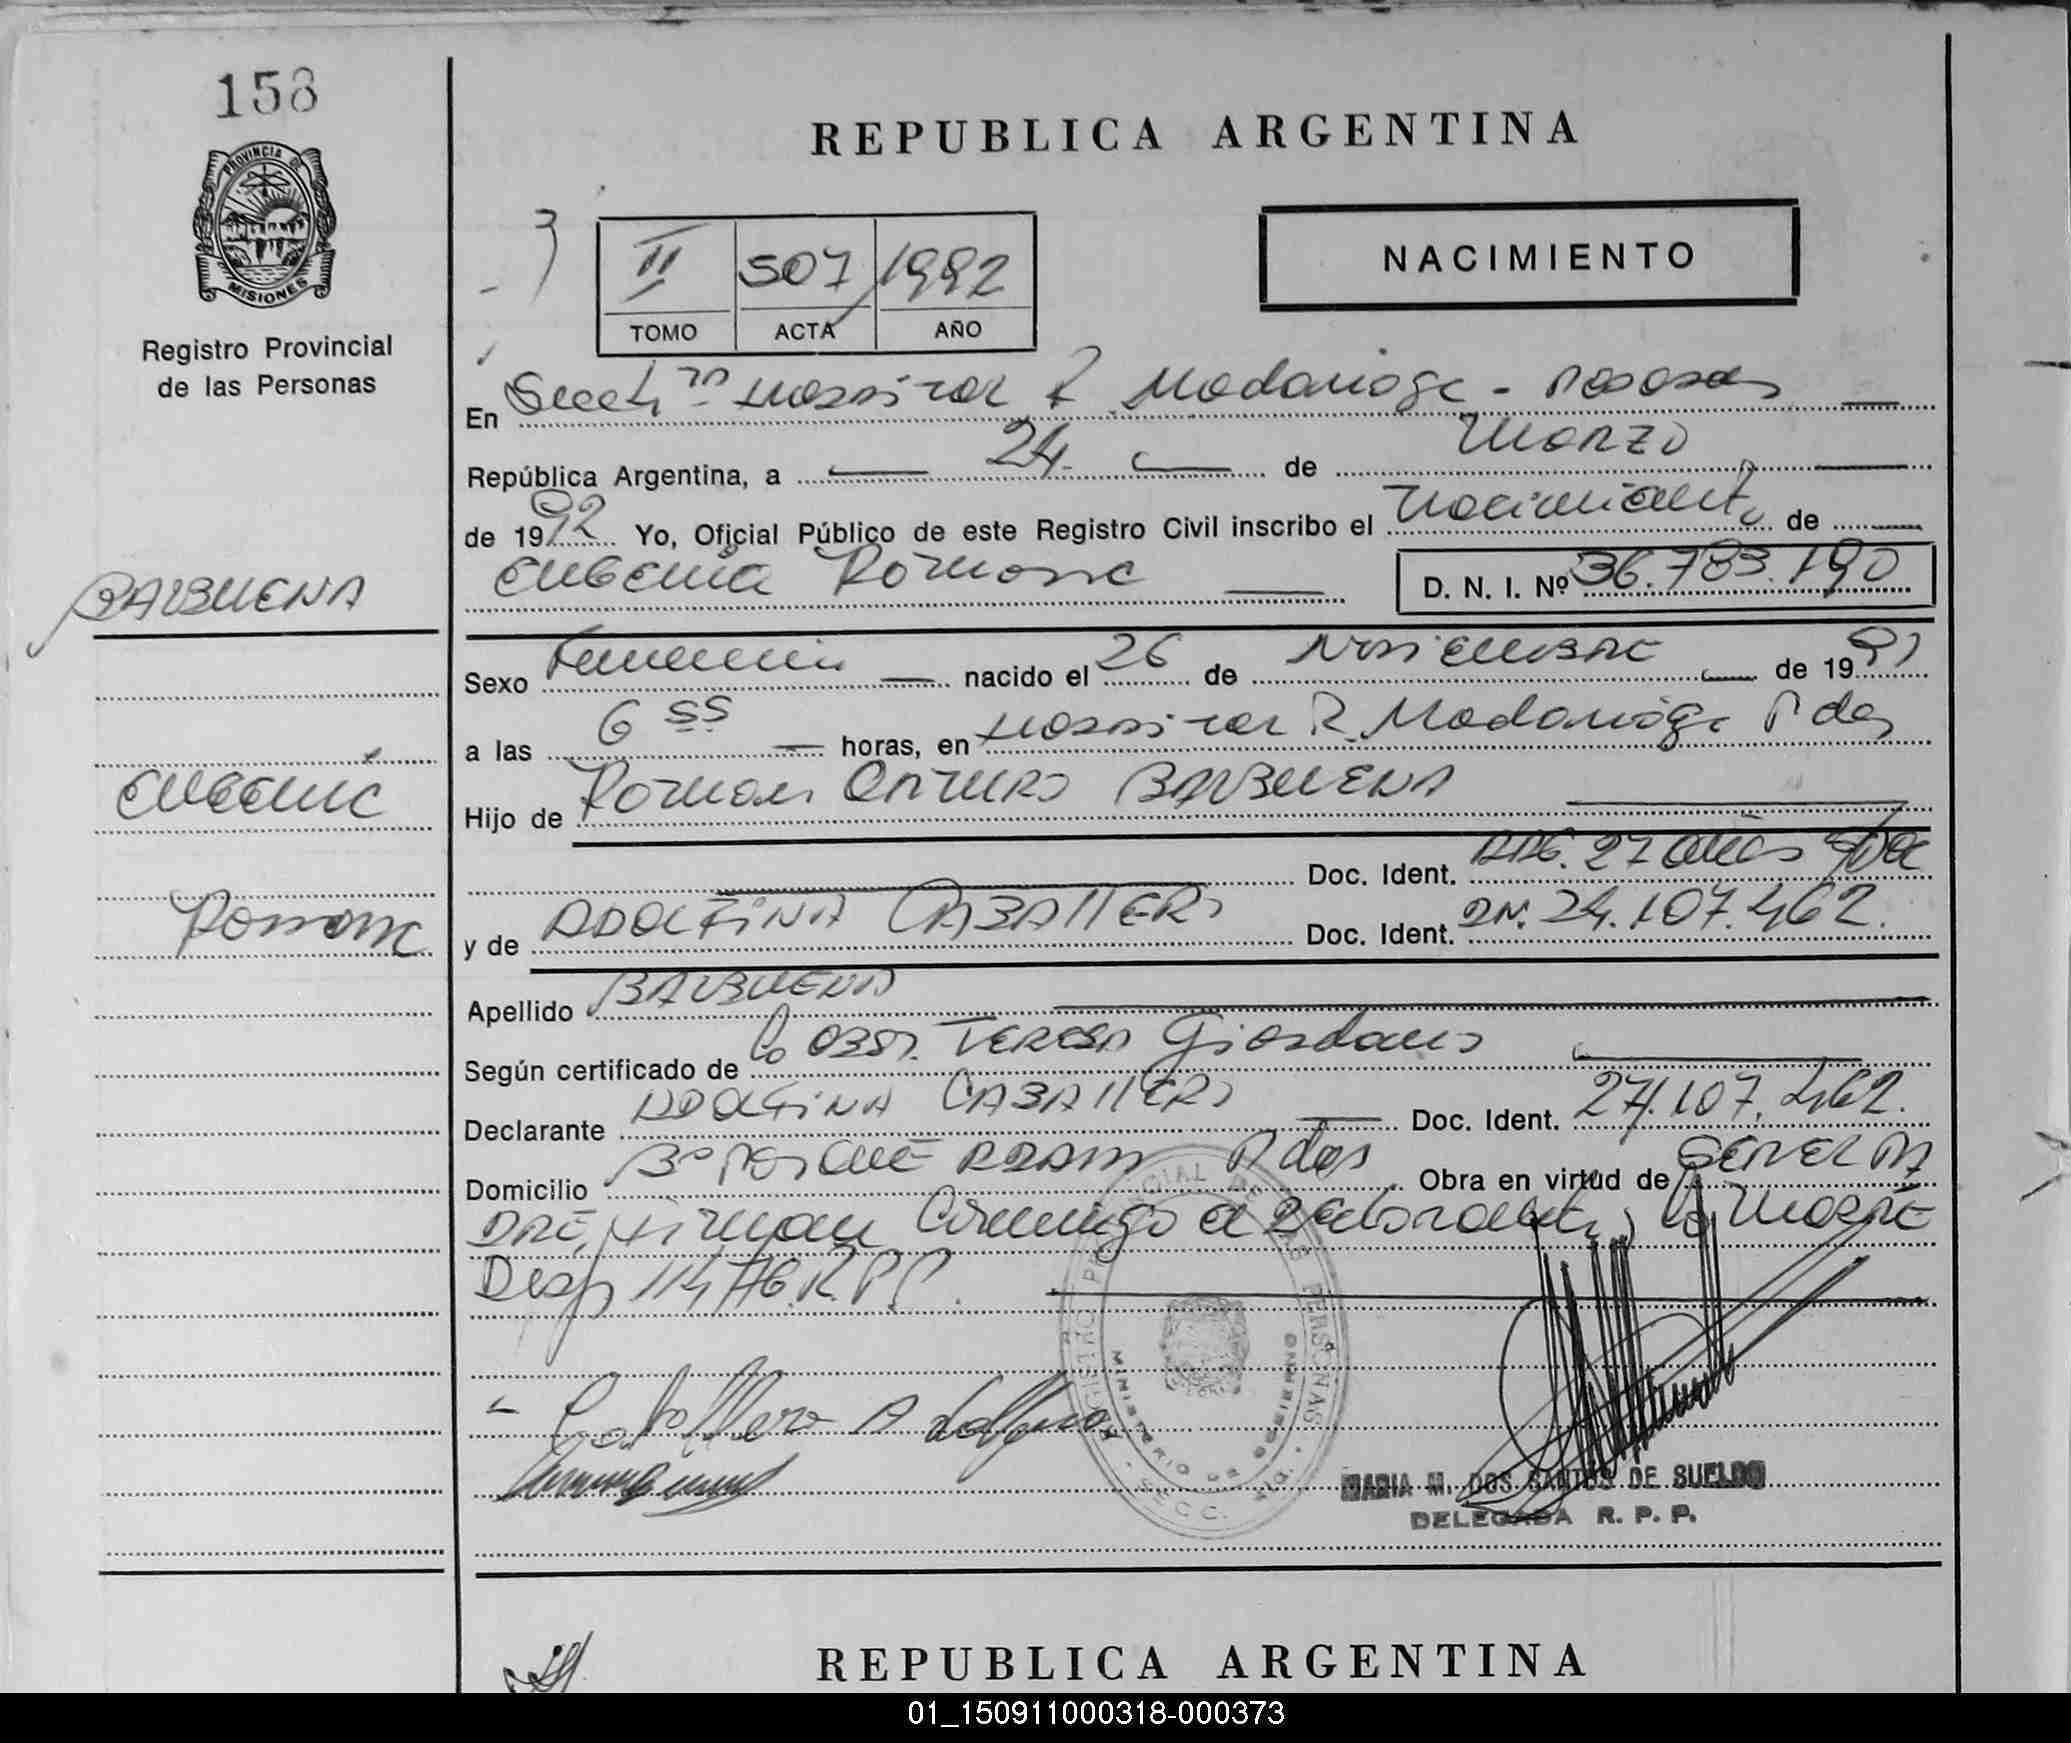 158
PROVINCIA DE
MISIONES
Registro Provincial
de las Personas
REPUBLICA ARGENTINA
II 507 1992
TOMO ACTA AÑO
NACIMIENTO
En Secc Hospital R Madariaga - Posadas
República Argentina, a 24 de Marzo
de 1992 Yo, Oficial Público de este Registro Civil inscribo el Nacimiento de
Eugenia Romona D. N. I. Nº 36.783.190
BALBUENA
Eugenia
Romona
Sexo Femenino nacido el 26 de Noviembre de 1991
a las 6 55 horas, en Hospital R. Madariaga Pdas
Hijo de Roman Arturo BALBUENA
Doc. Ident. ARG. 27 años
y de ADOLFINA CABALLERO Doc. Ident. DN. 24.107.462.
Apellido BALBUENA
Según certificado de La Obst. Teresa Giordano
Declarante ADOLFINA CABALLERO Doc. Ident. 24.107.462.
Domicilio Bº Pdas Obra en virtud de SER EL PA
DRE, Firman Conmigo el Declarante, la Madre
Disp 114/76.R.P.P.
Caballero Adolfina
REGISTRO PROVINCIAL DE LAS PERSONAS
MINISTERIO DE GOBIERNO
SECC.
MARIA M. DOS SANTOS DE SUELDO
DELEGADA R. P. P.
REPUBLICA ARGENTINA
01_150911000318-000373